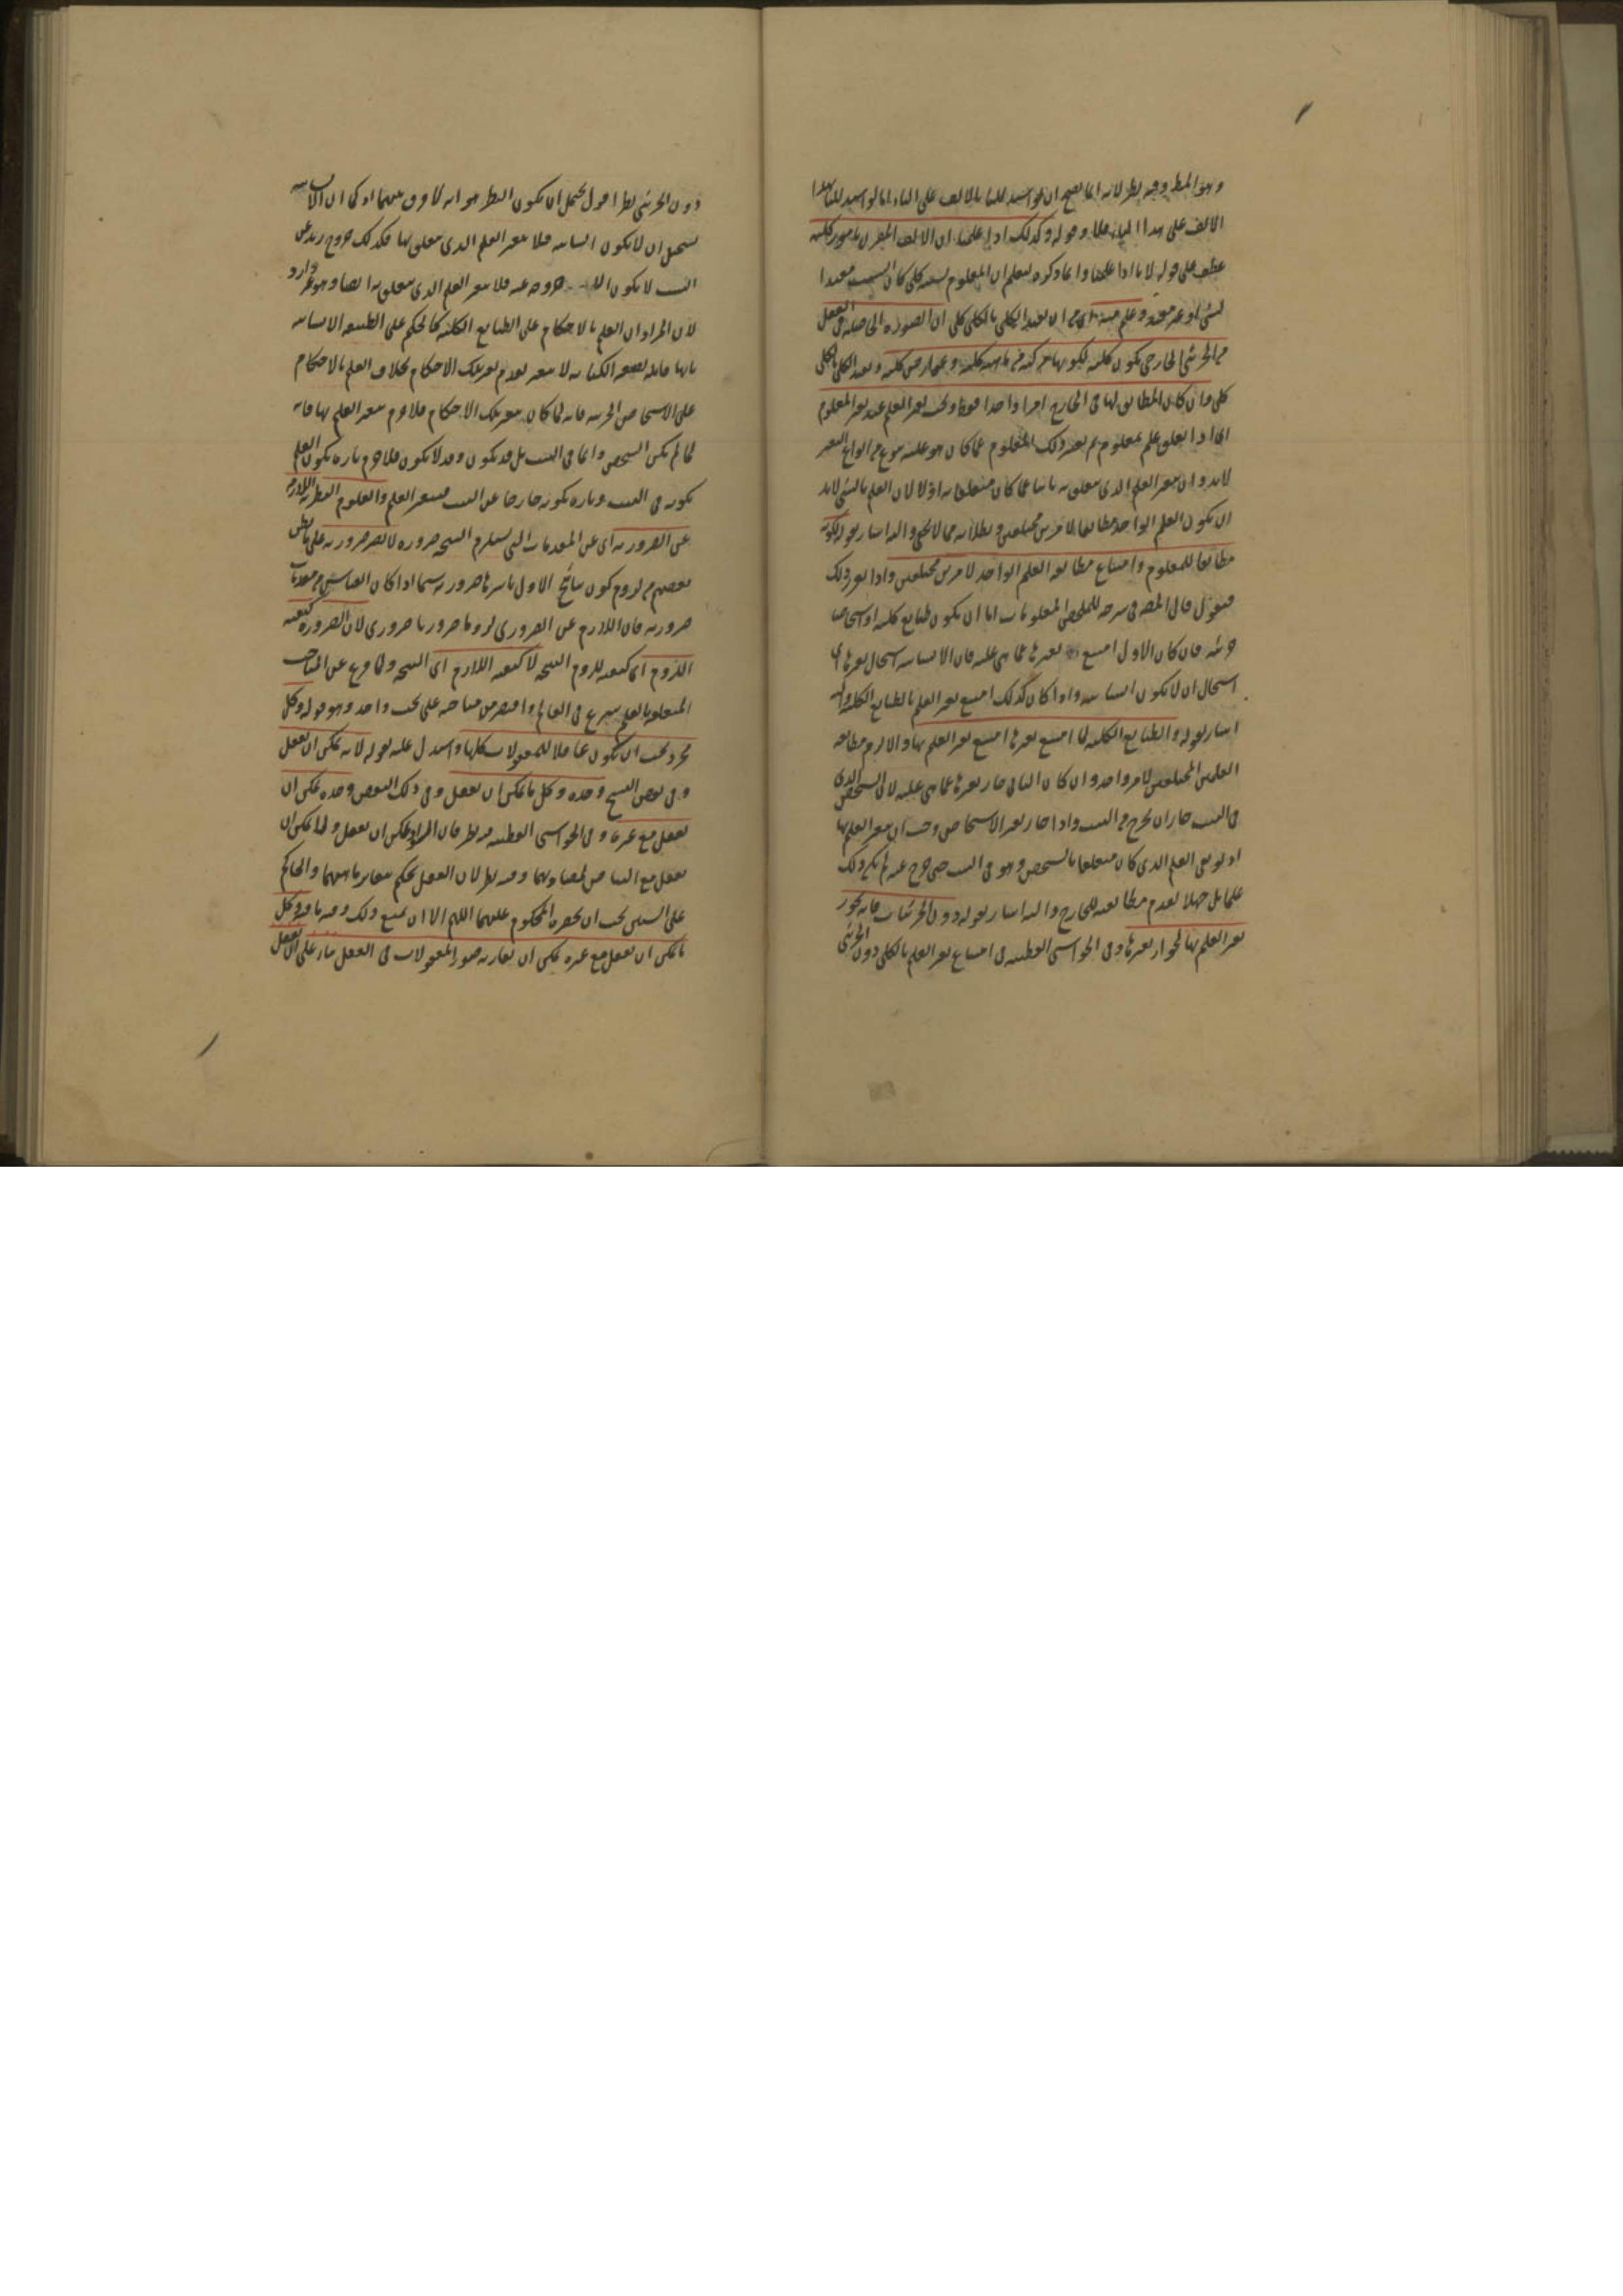 وهو المط وفيه نظر لانه انما يصح ان لو استدللنا بالالف على الباء اما لو استدللنا بهذا
الالف على هذا الباء فلا وقوله وكذلك اذا علمنا ان الالف المقرون بامور كليه
عطف على قوله لانا اذا علمنا وانما ذكره ليعلم ان المعلوم بسببه كلي كان السبب مقيدا
بشئ او غير مقيد وعلم منه اي من ان تقييد الكلي بالكلي كلي ان الصورة الحاصلة في العقل
من الجزئي الخارجي يكون كلية لكونها مركبة من ماهية كلية وعوارض كلية وتقييد الكلي بالكلي
كلي وان كان المطابق لها في الخارج امرا واحدا فقط ويجب تغير العلم عند تغير المعلوم
اي اذا تعلق علم بمعلوم ثم تغير ذلك المعلوم عما كان هو عليه بنوع من انواع التغير
لابد وان يتغير العلم الذي تعلق به ثانيا عما كان متعلقا به اولا لان العلم بالشئ لابد
ان يكون العلم الواحد مطابقا لامرين مختلفين وبطلانه مما لا يخفى واليه اشار بقوله لكونه
مطابقا للمعلوم وامتناع مطابقة العلم الواحد لامرين مختلفين واذا تقرر ذلك
فنقول قال المص في شرحه للملخص المعلومات اما ان يكون طبايع كلية او اشخاصا
جزئية فان كان الاول امتنع تغيرها عما هي عليه فان الانسانية استحال تغيرها اي
استحال ان لا يكون انسانية واذا كان كذلك امتنع تغير العلم بالطبايع الكلية واليه
اشار بقوله والطبايع الكلية لما امتنع تغيرها امتنع تغير العلم بها والا لزم مطابقة
العلمين المختلفين لامر واحد وان كان الثاني جاز تغيرها عما هي عليه لان الشخص الذي
في البيت جاز ان يخرج من البيت واذا جاز تغير الاشخاص وجب ان يتغير العلم بها
اذ لو بقي العلم الذي كان متعلقا بالشخص وهو في البيت حين خرج عنه لم يكن ذلك
علما بل جهلا لعدم مطابقته للخارج واليه اشار بقوله دون الجزئيات فانه يجوز
تغير العلم بها لجواز تغيرها وفي الحواشي القطبية في امتناع تغير العلم بالكلي دون الجزئي
دون الجزئي نظر اقول يحتمل ان يكون النظر هو انه لا فرق بينهما اذ كما ان الانسانية
يستحيل ان لا يكون انسانية فلا يتغير العلم الذي يتعلق بها فكذلك خروج زيد عن
البيت لا يكون خروجه عنه فلا يتغير العلم الذي يتعلق به ايضا وهو غير وارد
لان المراد ان العلم بالاحكام على الطبايع الكلية كالحكم على الطبيعة الانسانية
بانها قابلة لصنعة الكتابة لا يتغير لعدم تغير تلك الاحكام بخلاف العلم بالاحكام
على الاشخاص الجزئية فانه لما كان يتغير تلك الاحكام فلا جرم يتغير العلم بها فانه
لما لم يكن الشخص دائما في البيت بل قد يكون وقد لا يكون فلا جرم تارة يكون العلم
بكونه في البيت وتارة بكونه خارجا عن البيت فيتغير العلم والعلوم النظرية اللازمة
عن الضرورية اي عن المقدمات التي يستلزم النتيجة ضرورة لا تصير ضرورية على ما ظن
بعضهم من لزوم كون نتايج الاول باسرها ضرورية سيما اذا كان القياس من مقدمات
ضرورية فان اللازم عن الضروري لزوما ضروريا ضروري لان الضرورة كيفية
اللزوم اي كيفية لزوم النتيجة لا كيفية اللازم اي النتيجة ولما فرغ عن المباحث
المتعلقة بالعلم شرع في العالم واقتصر من مباحثه على بحث واحد وهو قوله وكل
مجرد يجب ان يكون عاقلا للمعقولات كلها واستدل عليه بقوله لانه يمكن ان يعقل
وفي بعض النسخ وحده وكل ما يمكن ان يعقل وفي ذلك البعض وحده يمكن ان
يعقل مع غيره وفي الحواشي القطبية فيه نظر فان المراد يمكن ان يعقل ولما يمكن ان
يعقل مع البياض لتضادهما وفيه نظر لان العقل يحكم بتغاير ماهيتهما والحاكم
على الشيئين يجب ان يحضره المحكوم عليهما اللهم الا ان يمنع ذلك وفيه ما فيه وكل
ما يمكن ان يعقل مع غيره يمكن ان يقارنه صور المعقولات في العقل بناء على ان التعقل